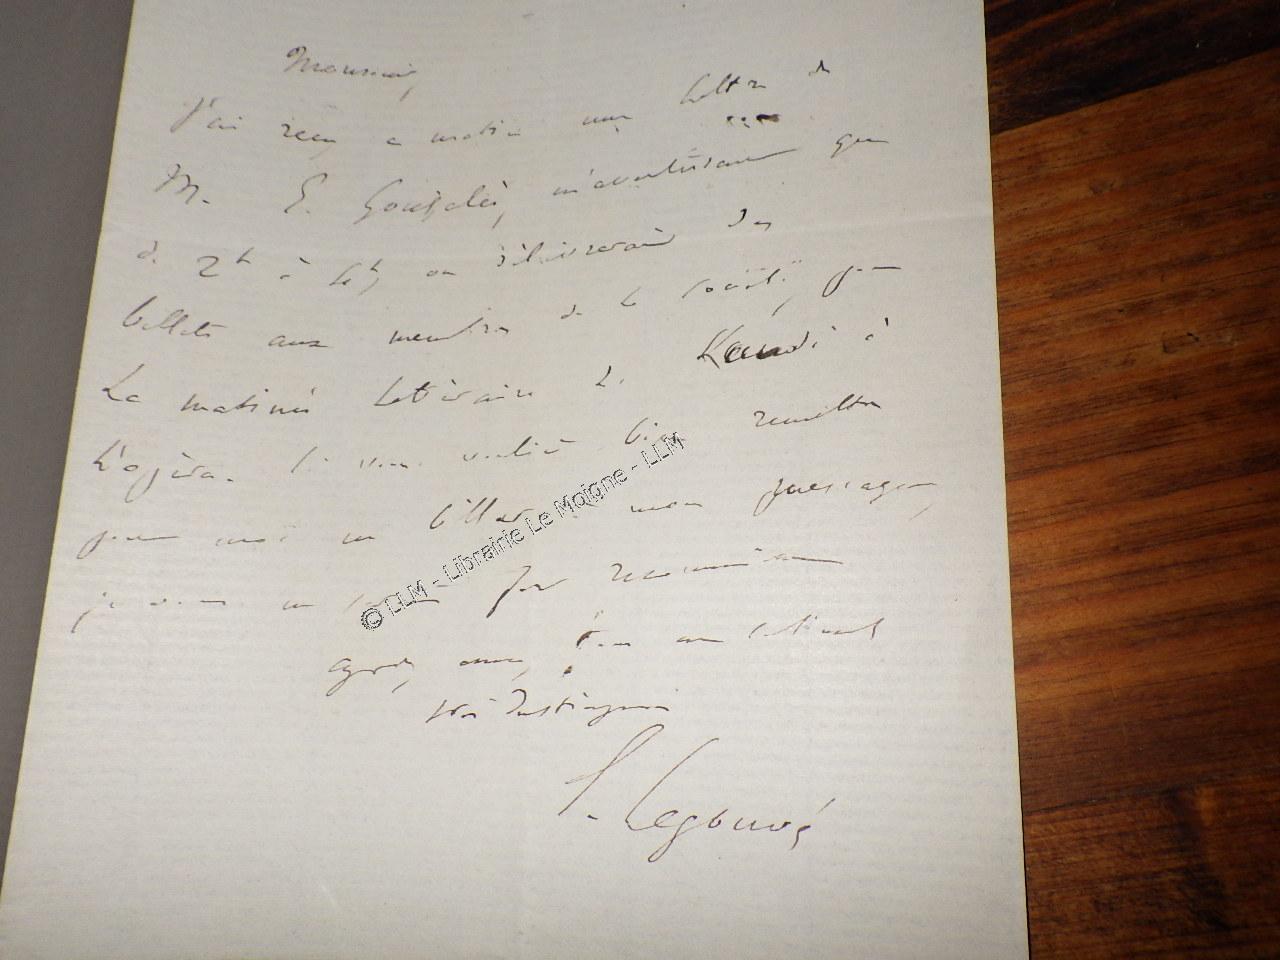 Monsieur,
J'ai reçu ce matin une lettre de
M. E. Gonzalès, m'avertissant que
de 2h à 4h, on délivrerait des
billets aux membres de la société, pour
la matinée littéraire de Lundi à
l'opéra. Si vous vouliez bien remettre
pour moi un billet à mon messager,
je vous en serais fort reconnaissant
agréez, mons, tous mes sentiments
très distingués
E. Legouvé
© LLM - Librairie Le Moigne - LLM